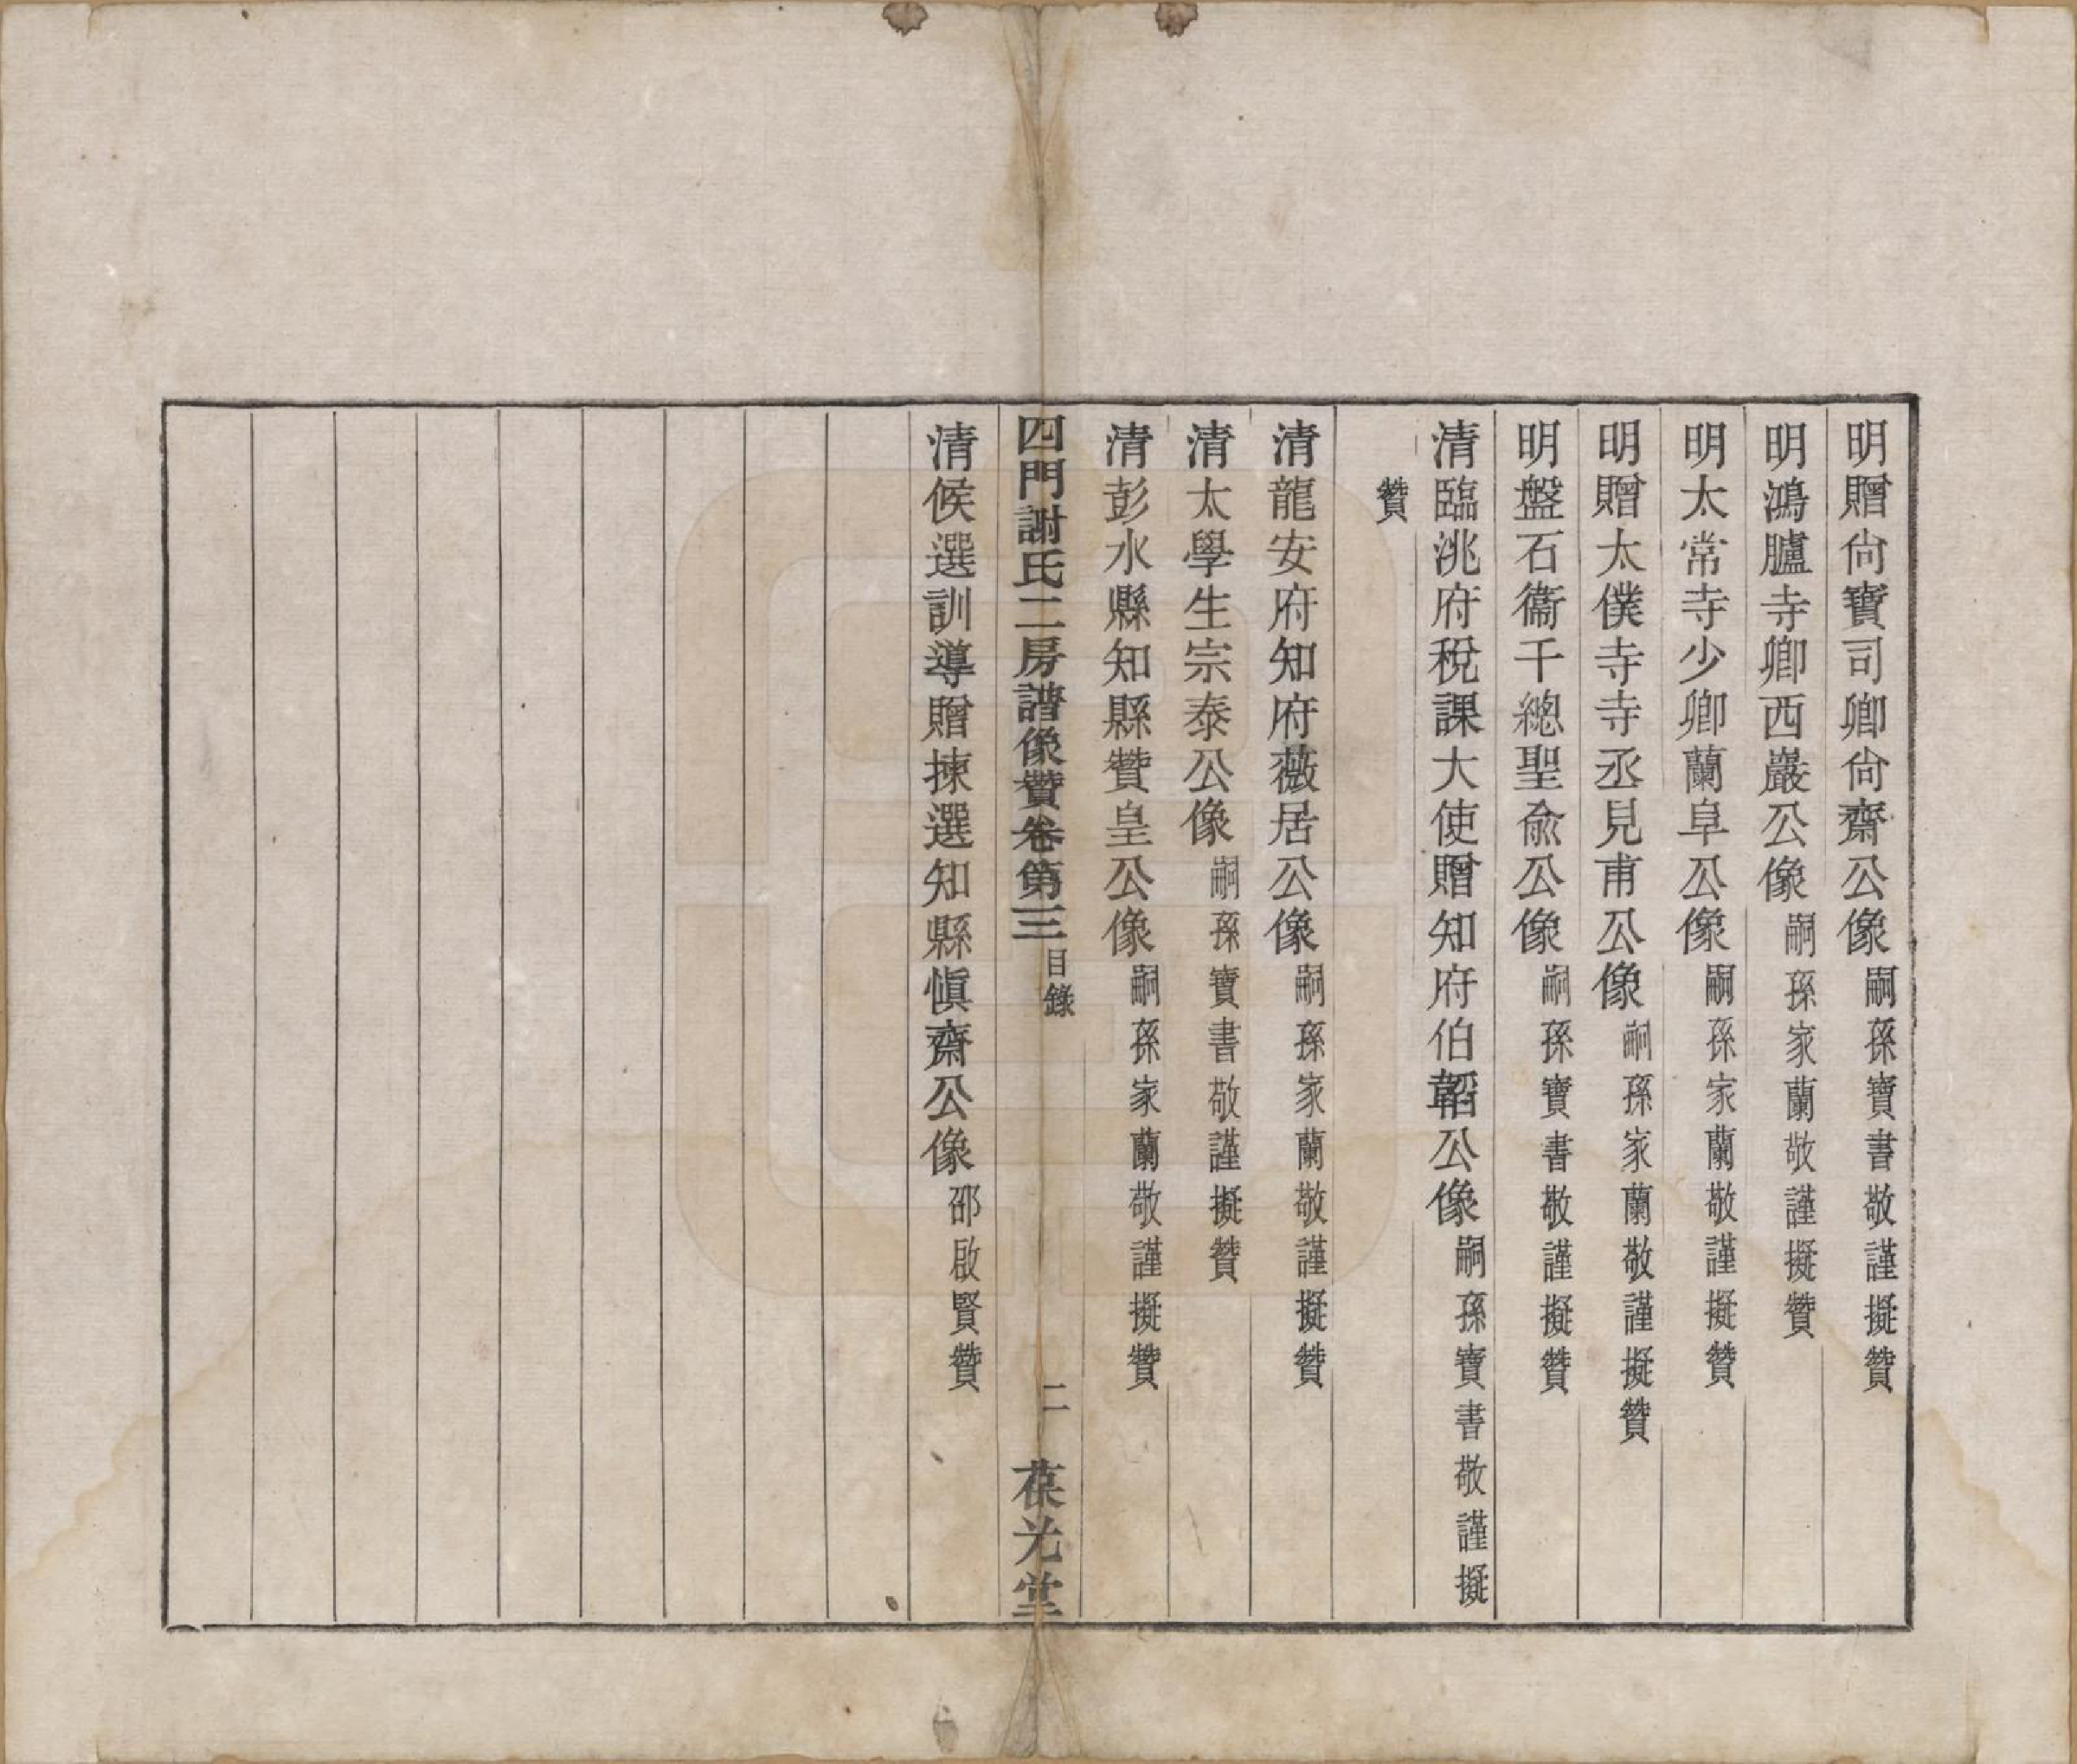 明贈尙寶司卿尙齋公像嗣孫寶書敬謹擬贊
明鴻臚寺卿西巖公像嗣孫家蘭敬謹擬贊
明太常寺少卿蘭阜公像嗣孫家蘭敬謹擬贊
明贈太僕寺寺丞見甫公像嗣孫家蘭敬謹擬贊
明盤石衞千總聖俞公像嗣孫寶書敬謹擬贊
清臨洮府稅課大使贈知府伯韜公像嗣孫寶書敬謹擬
贊
清龍安府知府薇居公像嗣孫家蘭敬謹擬贊
清太學生宗泰公像嗣孫寶書敬謹擬贊
清彭水縣知縣贊皇公像嗣孫家蘭敬謹擬贊
四門謝氏二房譜像贊卷第三目錄 二 葆光堂
清候選訓導贈揀選知縣愼齋公像邵啟賢贊